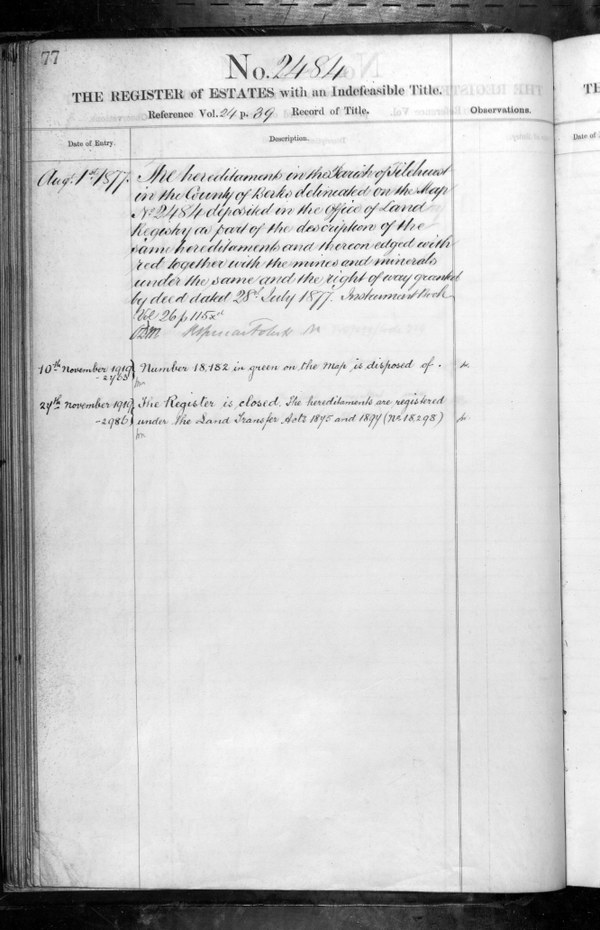 77
No. 2484
THE REGISTER of ESTATES with an Indefeasible Title.
Reference Vol. 24 p. 39 Record of Title.
Observations.
Date of Entry.
Description.
Augt. 1st 1877.
The hereditaments in the Parish of Tilehurst
in the County of Berks delineated on the Map
No 2484 deposited in the Office of Land
Registry as part of the description of the
same hereditaments and thereon edged with
red together with the mines and minerals
under the same and the right of way granted
by deed dated 28th July 1877. Instrument Book
Vol 26 p 115
10th November 1919
Number 18,182 in green on the Map is disposed of.
27th November 1919
-2986
The Register is closed. The hereditaments are registered
under the Land Transfer Acts 1875 and 1897 (No 18,298)
TH
Date of